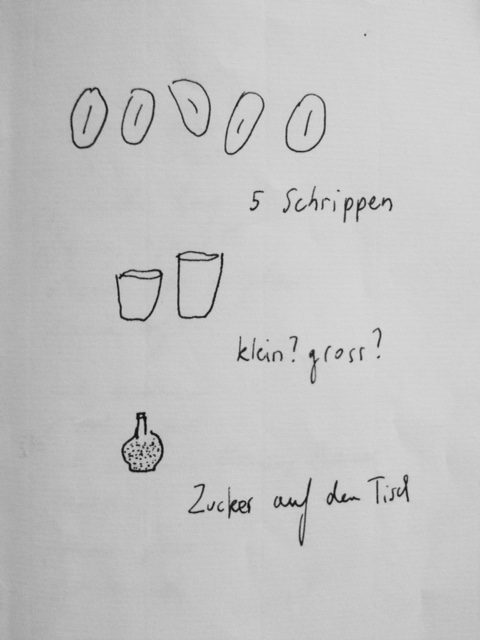 5 Schrippen
klein? gross?
Zucker auf dem Tisch